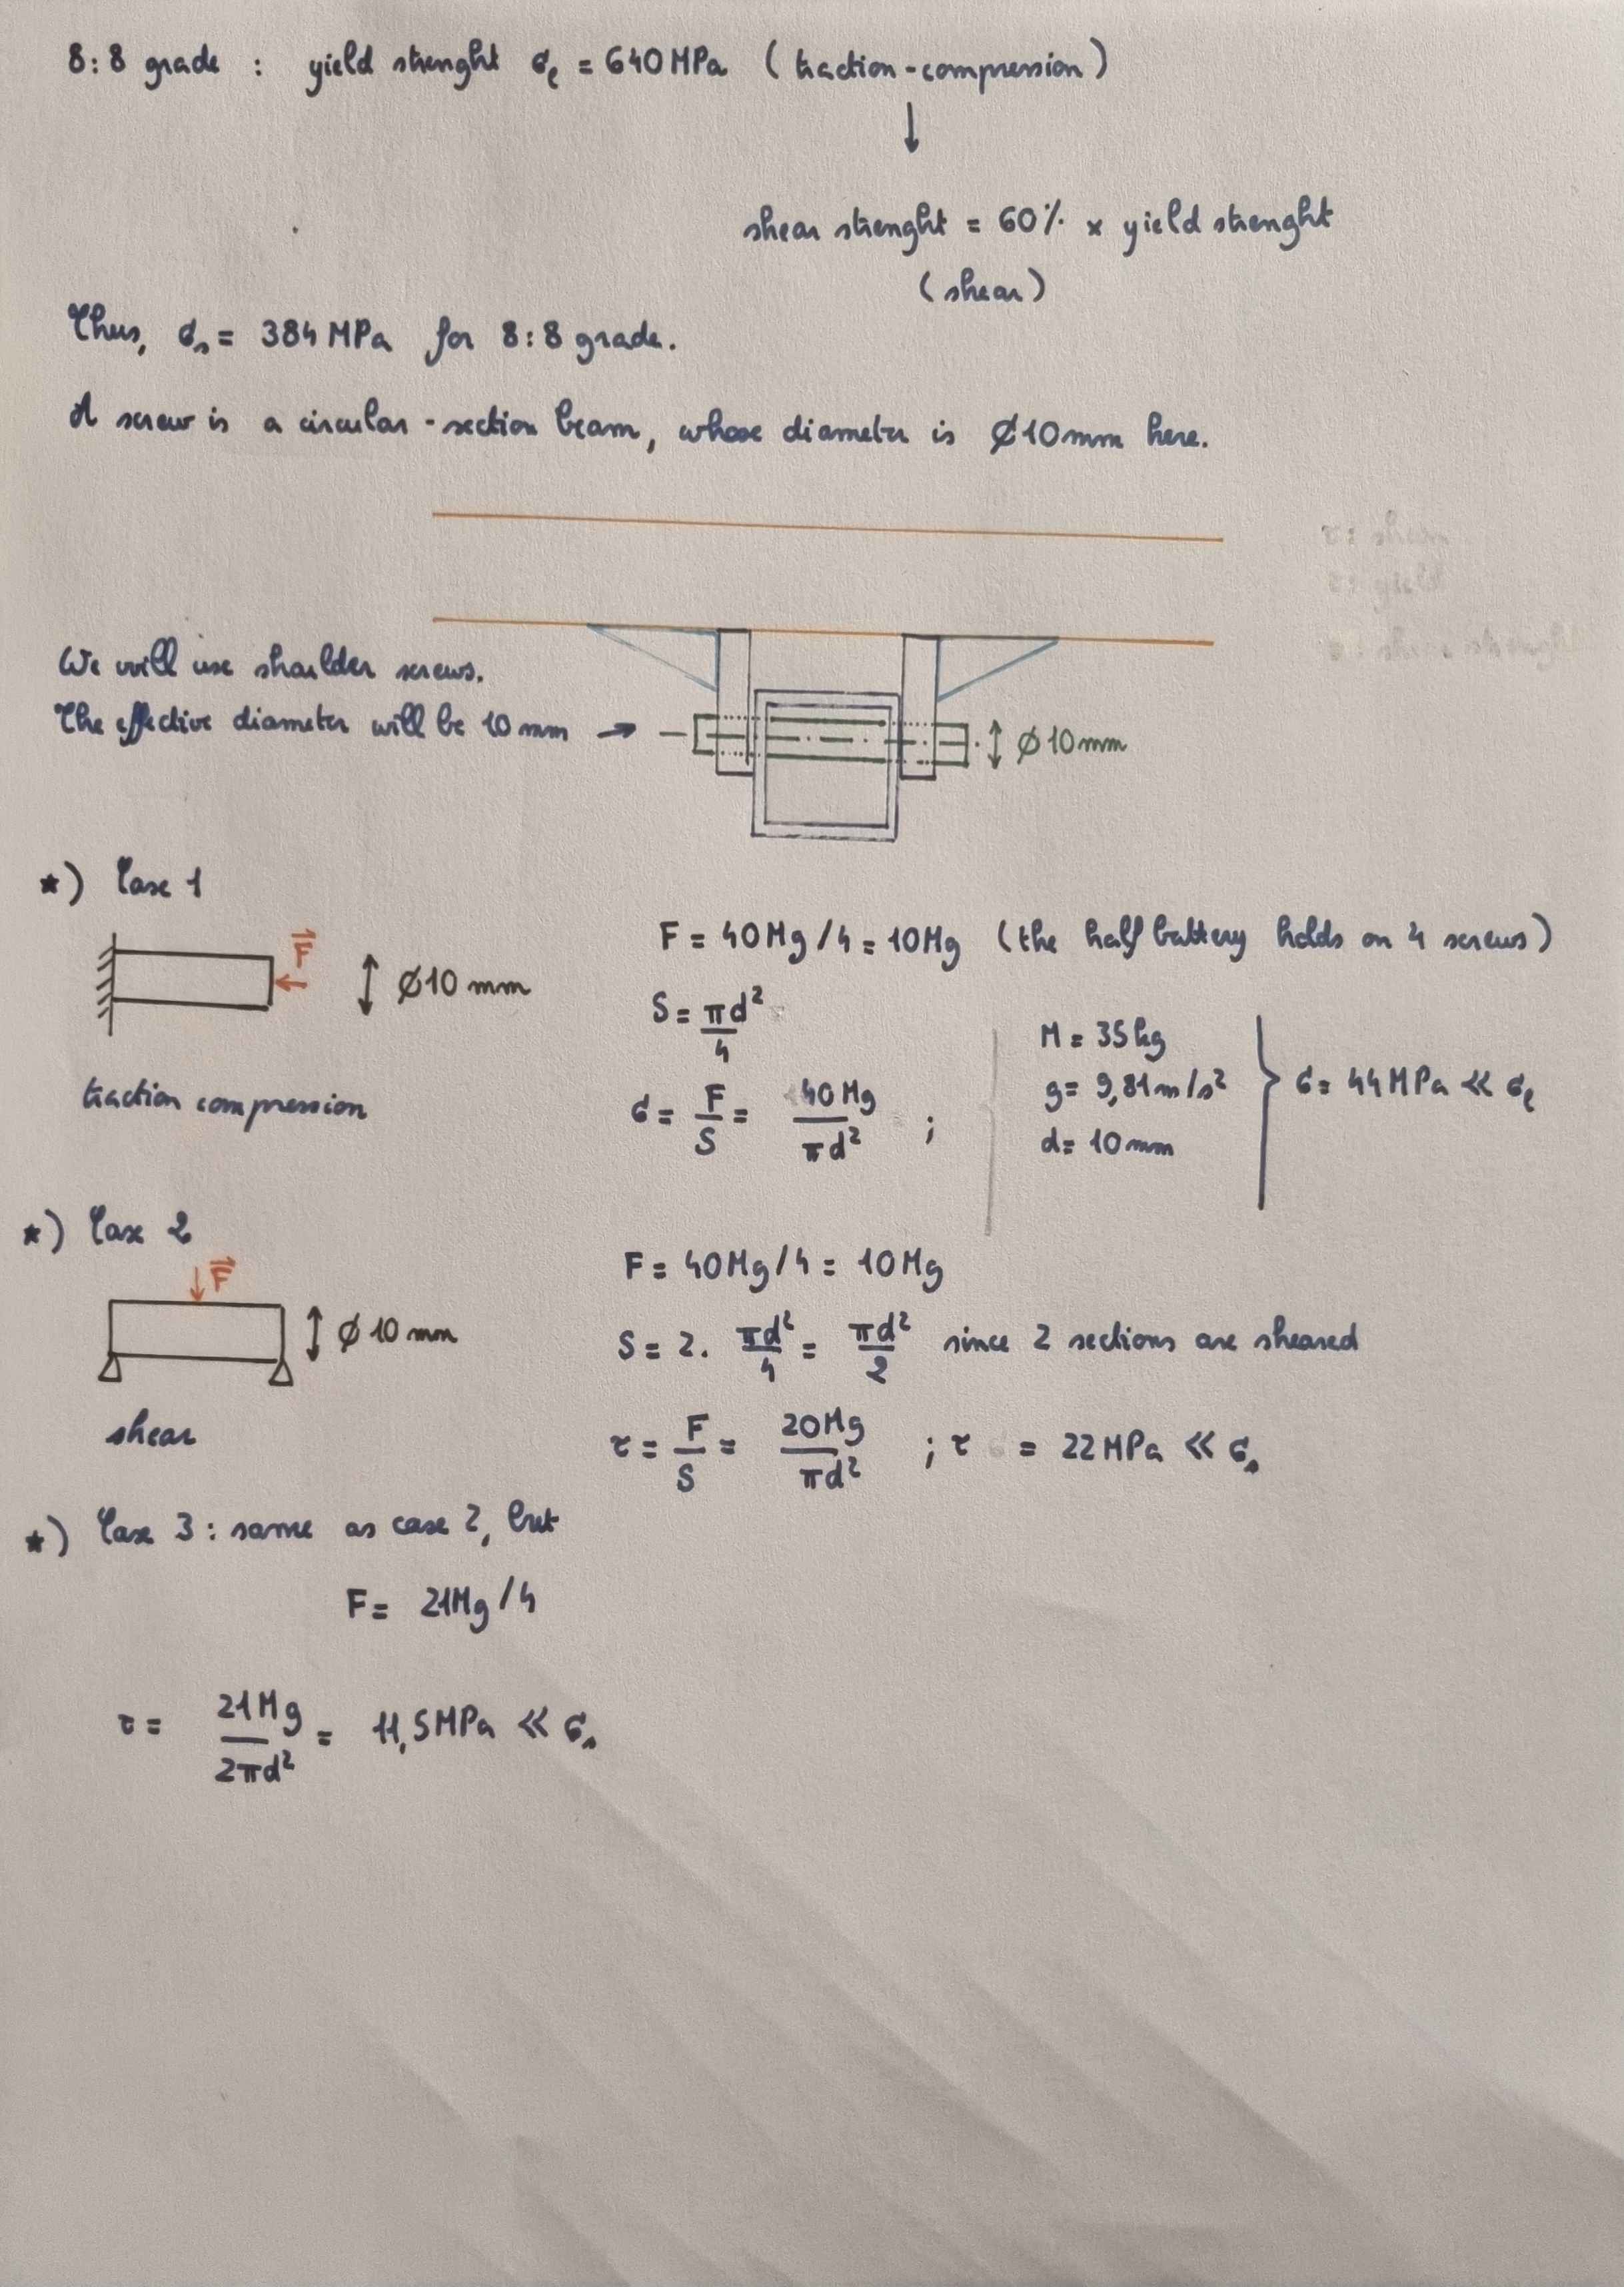 8:8 grade : yield strenght σe = 640 MPa (traction-compression)
↓
shear strenght = 60% × yield strenght
(shear)
Thus, σs = 384 MPa for 8:8 grade.
A screw is a circular-section beam, whose diameter is Ø10mm here.
We will use shoulder screws.
The effective diameter will be 10 mm →
Ø10mm
*) Case 1
F
Ø10 mm
traction compression
F = 40Mg/4 = 10Mg (the half battery holds on 4 screws)
S = πd²/4
σ = F/S = 40Mg/πd² ;
M = 35kg
g = 9,81m/s²
d = 10mm
} σ = 44MPa << σe
*) Case 2
F
Ø10 mm
shear
F = 40Mg/4 = 10Mg
S = 2. πd²/4 = πd²/2 since 2 sections are sheared
τ = F/S = 20Mg/πd² ; τ = 22MPa << σs
*) Case 3 : same as case 2, but
F = 21Mg/4
τ = 21Mg/2πd² = 11,5MPa << σs